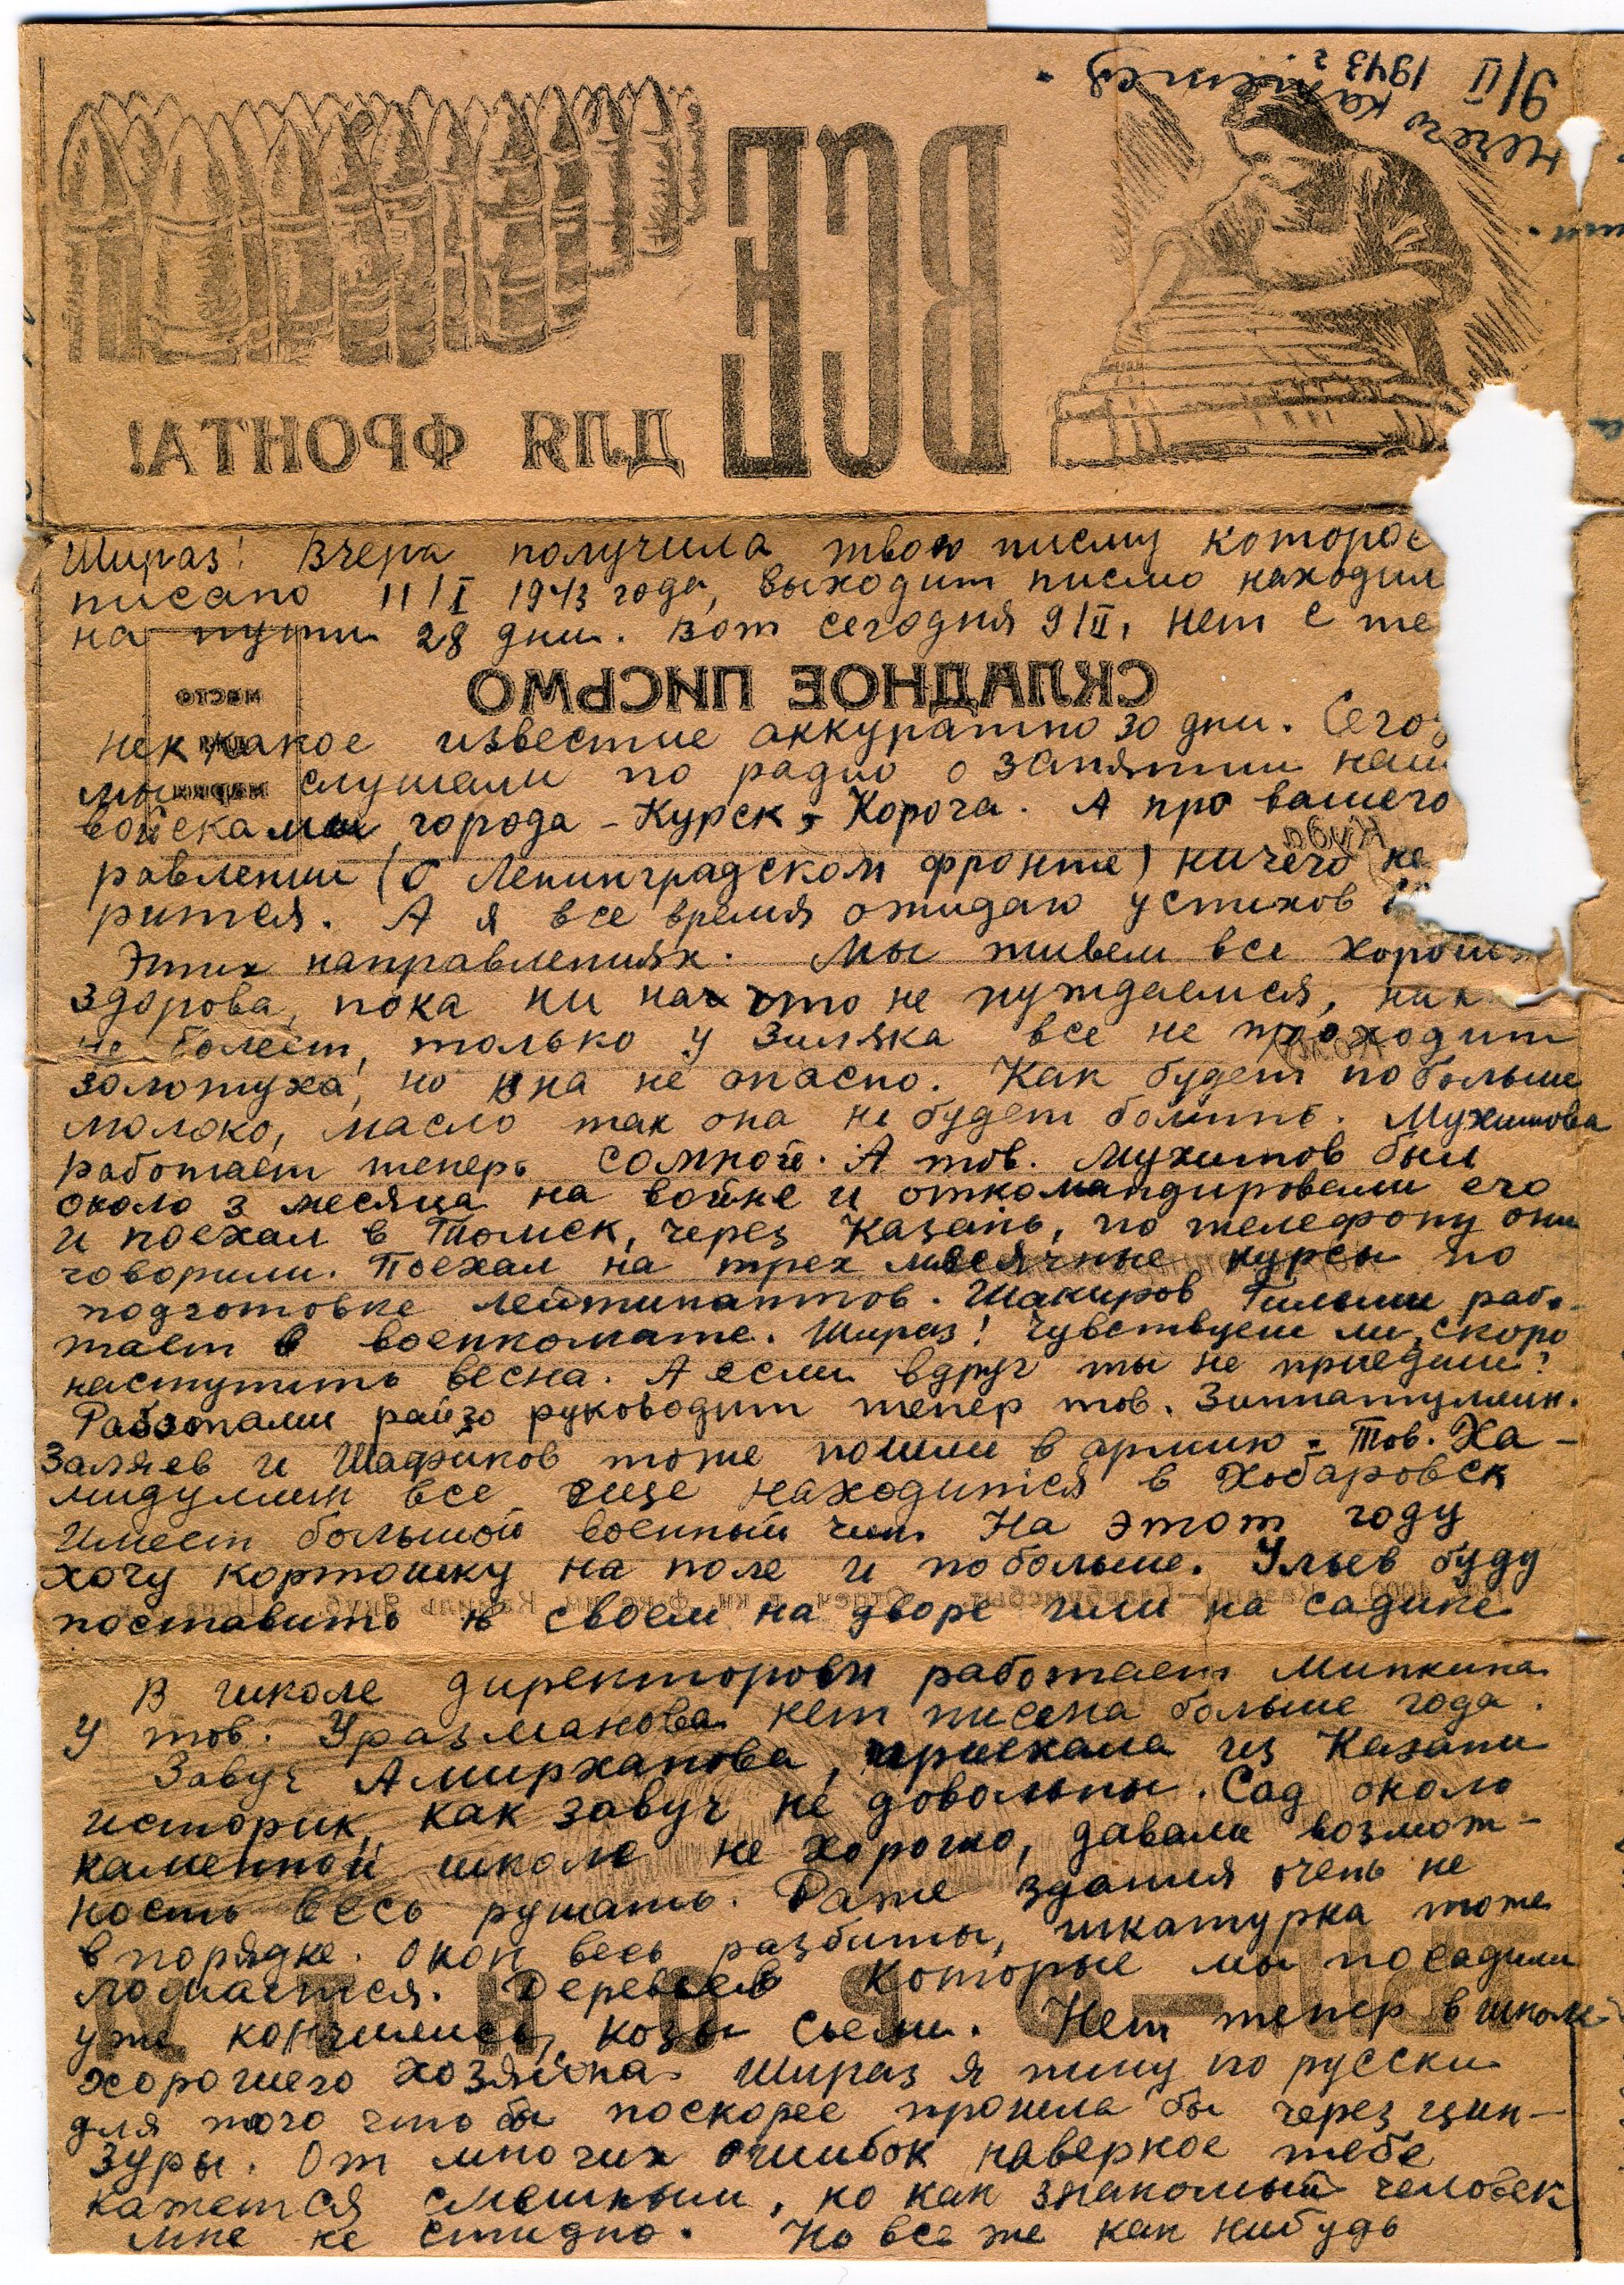 9/II 1943 г
ничего кажется.
ВСЕ
ДЛЯ ФРОНТА!
Шираз! Вчера получила твою писму которое
писано 11/I 1943 года, выходит писмо находил
на пути 28 дни. Вот сегодня 9/II, нет с те
СКЛАДНОЕ ПИСЬМО
место
марки
некакое известие аккуратно 30 дни. Сегод
мы слушали по радио о занятии наш
войсками города - Курск, Короча. А про вашего
Куда
равлении (о Ленинградском фронте) ничего не
рится. А я все время ожидаю успихов
Этих направлениях. Мы живем все хорошо
здорова, пока ни на что не нуждаемся, ник
не болеет, только у Зиляка все не проходит
золотуха, но она не опасно. Как будет побольше
молоко, масло так она не будет болить. Мухитова
работает теперь сомной. А тов. Мухитов был
около 3 месяца на войне и откомандировали его
и поехал в Томск, через Казань, по телефону они
говорили. Поехал на трех месячные курсы по
подготовке лейтинантов. Шакиров Гильми рабо-
тает в военкомате. Шираз! Чувствуеш ли, скоро
наступить весна. А если вдруг ты не приедиш?
Работами райзо руководит тепер тов. Зиннатуллин.
Заляев и Шафиков тоже пошли в армию. Тов. Ха-
мидуллин все еще находится в Хобаровск
Имеет большой военный чин. На этот году
хочу картошку на поле и побольше. Ульев буду
поставить в своем на дворе или на садике
В школе директором работает Минкина.
У тов. Уразманова нет писма больше года.
Завуч Амирханова, приехала из Казани
историк, как завуч не довольны. Сад около
каменной школе не хорошо, давали возмож-
ность весь рушать. Даже здания очень не
в порядке. Окон весь разбиты, шкатурка тоже
ломается. Деревьев которые мы посадили
ФРОНТУ
уже кончились, козы сьели. Нет тепер в школе
хорошего хозяина. Шираз я пишу по русски
для того чтобы поскорее прошла бы через цин-
зуры. От многих ошибок наверное тебе
кажется смешным, но как знакомый человек
мне не стидно. Но все же как нибудь